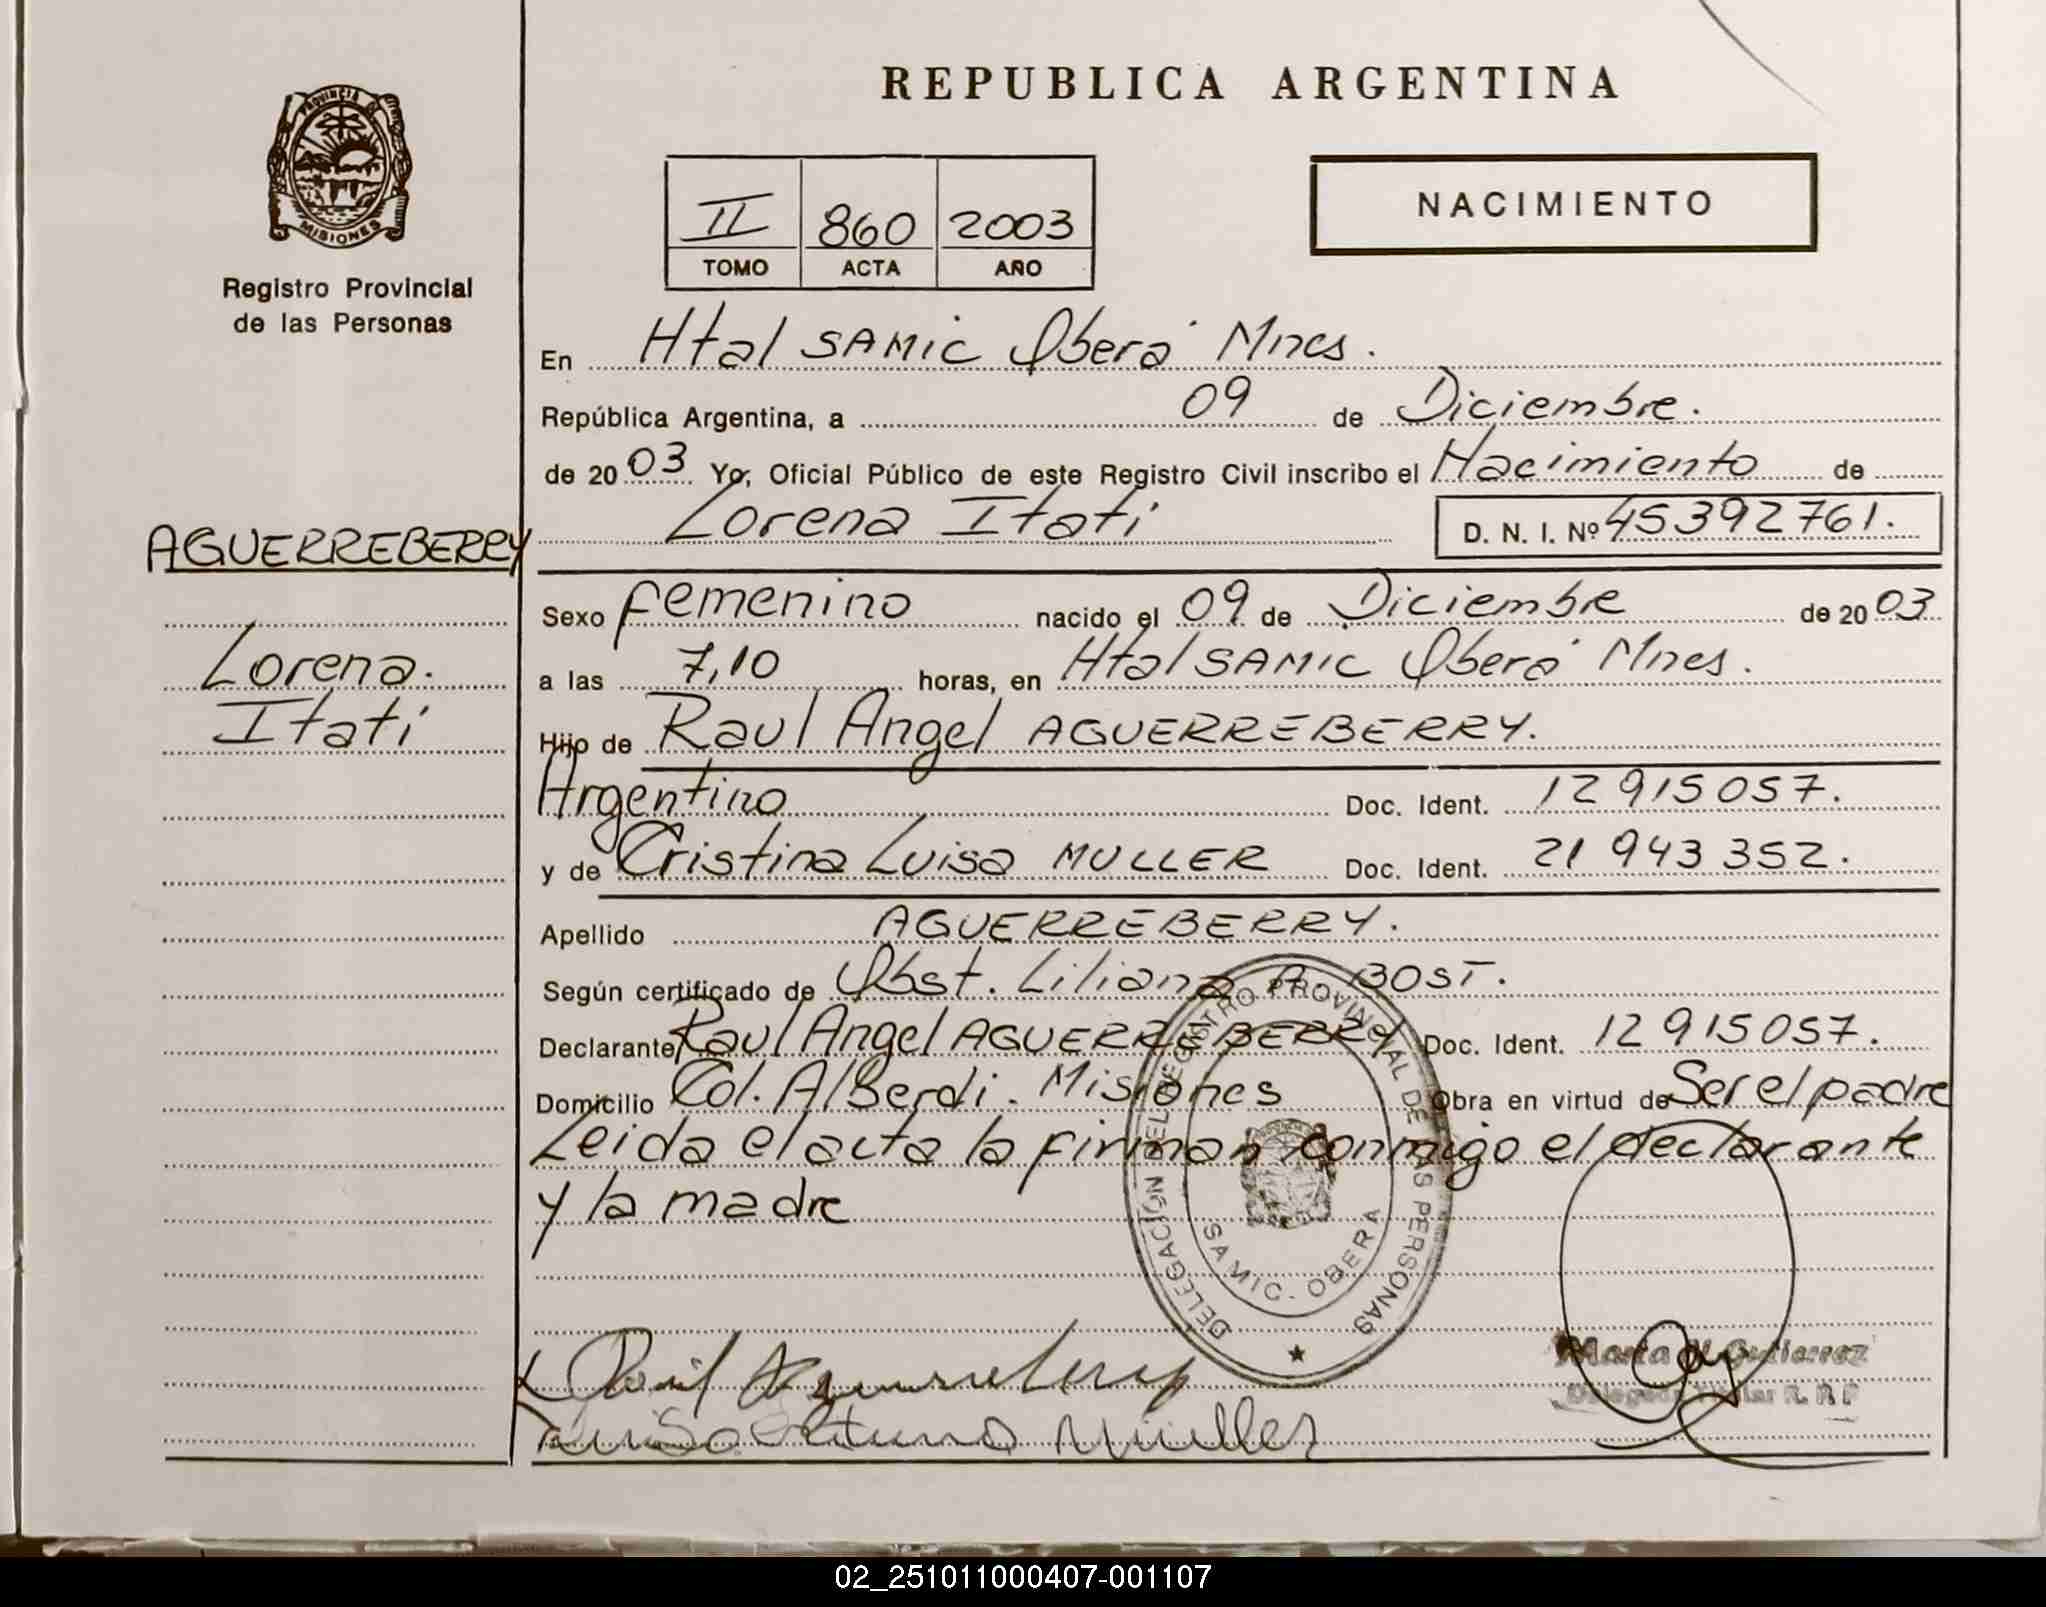 REPUBLICA ARGENTINA
PROVINCIA DE
MISIONES
Registro Provincial
de las Personas
II 860 2003
TOMO ACTA AÑO
NACIMIENTO
En Htal SAMIC Oberá Mnes.
República Argentina, a 09 de Diciembre.
de 2003 Yo, Oficial Público de este Registro Civil inscribo el Nacimiento de
Lorena Itatí D. N. I. Nº 45392761.
AGUERREBERRY
Lorena.
Itatí
Sexo femenino nacido el 09 de Diciembre de 2003
a las 7,10 horas, en Htal SAMIC Oberá Mnes.
Hijo de Raul Angel AGUERREBERRY.
Argentino Doc. Ident. 12 915 057.
y de Cristina Luisa MULLER Doc. Ident. 21 943 352.
Apellido AGUERREBERRY.
Según certificado de Obst. Liliana A. BOST.
Declarante Raul Angel AGUERREBERRY Doc. Ident. 12 915 057.
Domicilio Col. Alberdi. Misiones Obra en virtud de Ser el padre
Leida el acta la firman conmigo el declarante
y la madre
DELEGACIÓN DEL REGISTRO PROVINCIAL DE LAS PERSONAS
SAMIC - OBERA
Raúl Aguerreberry
Müller
Gutierrez
Delegada Titular R. P. P
02_251011000407-001107